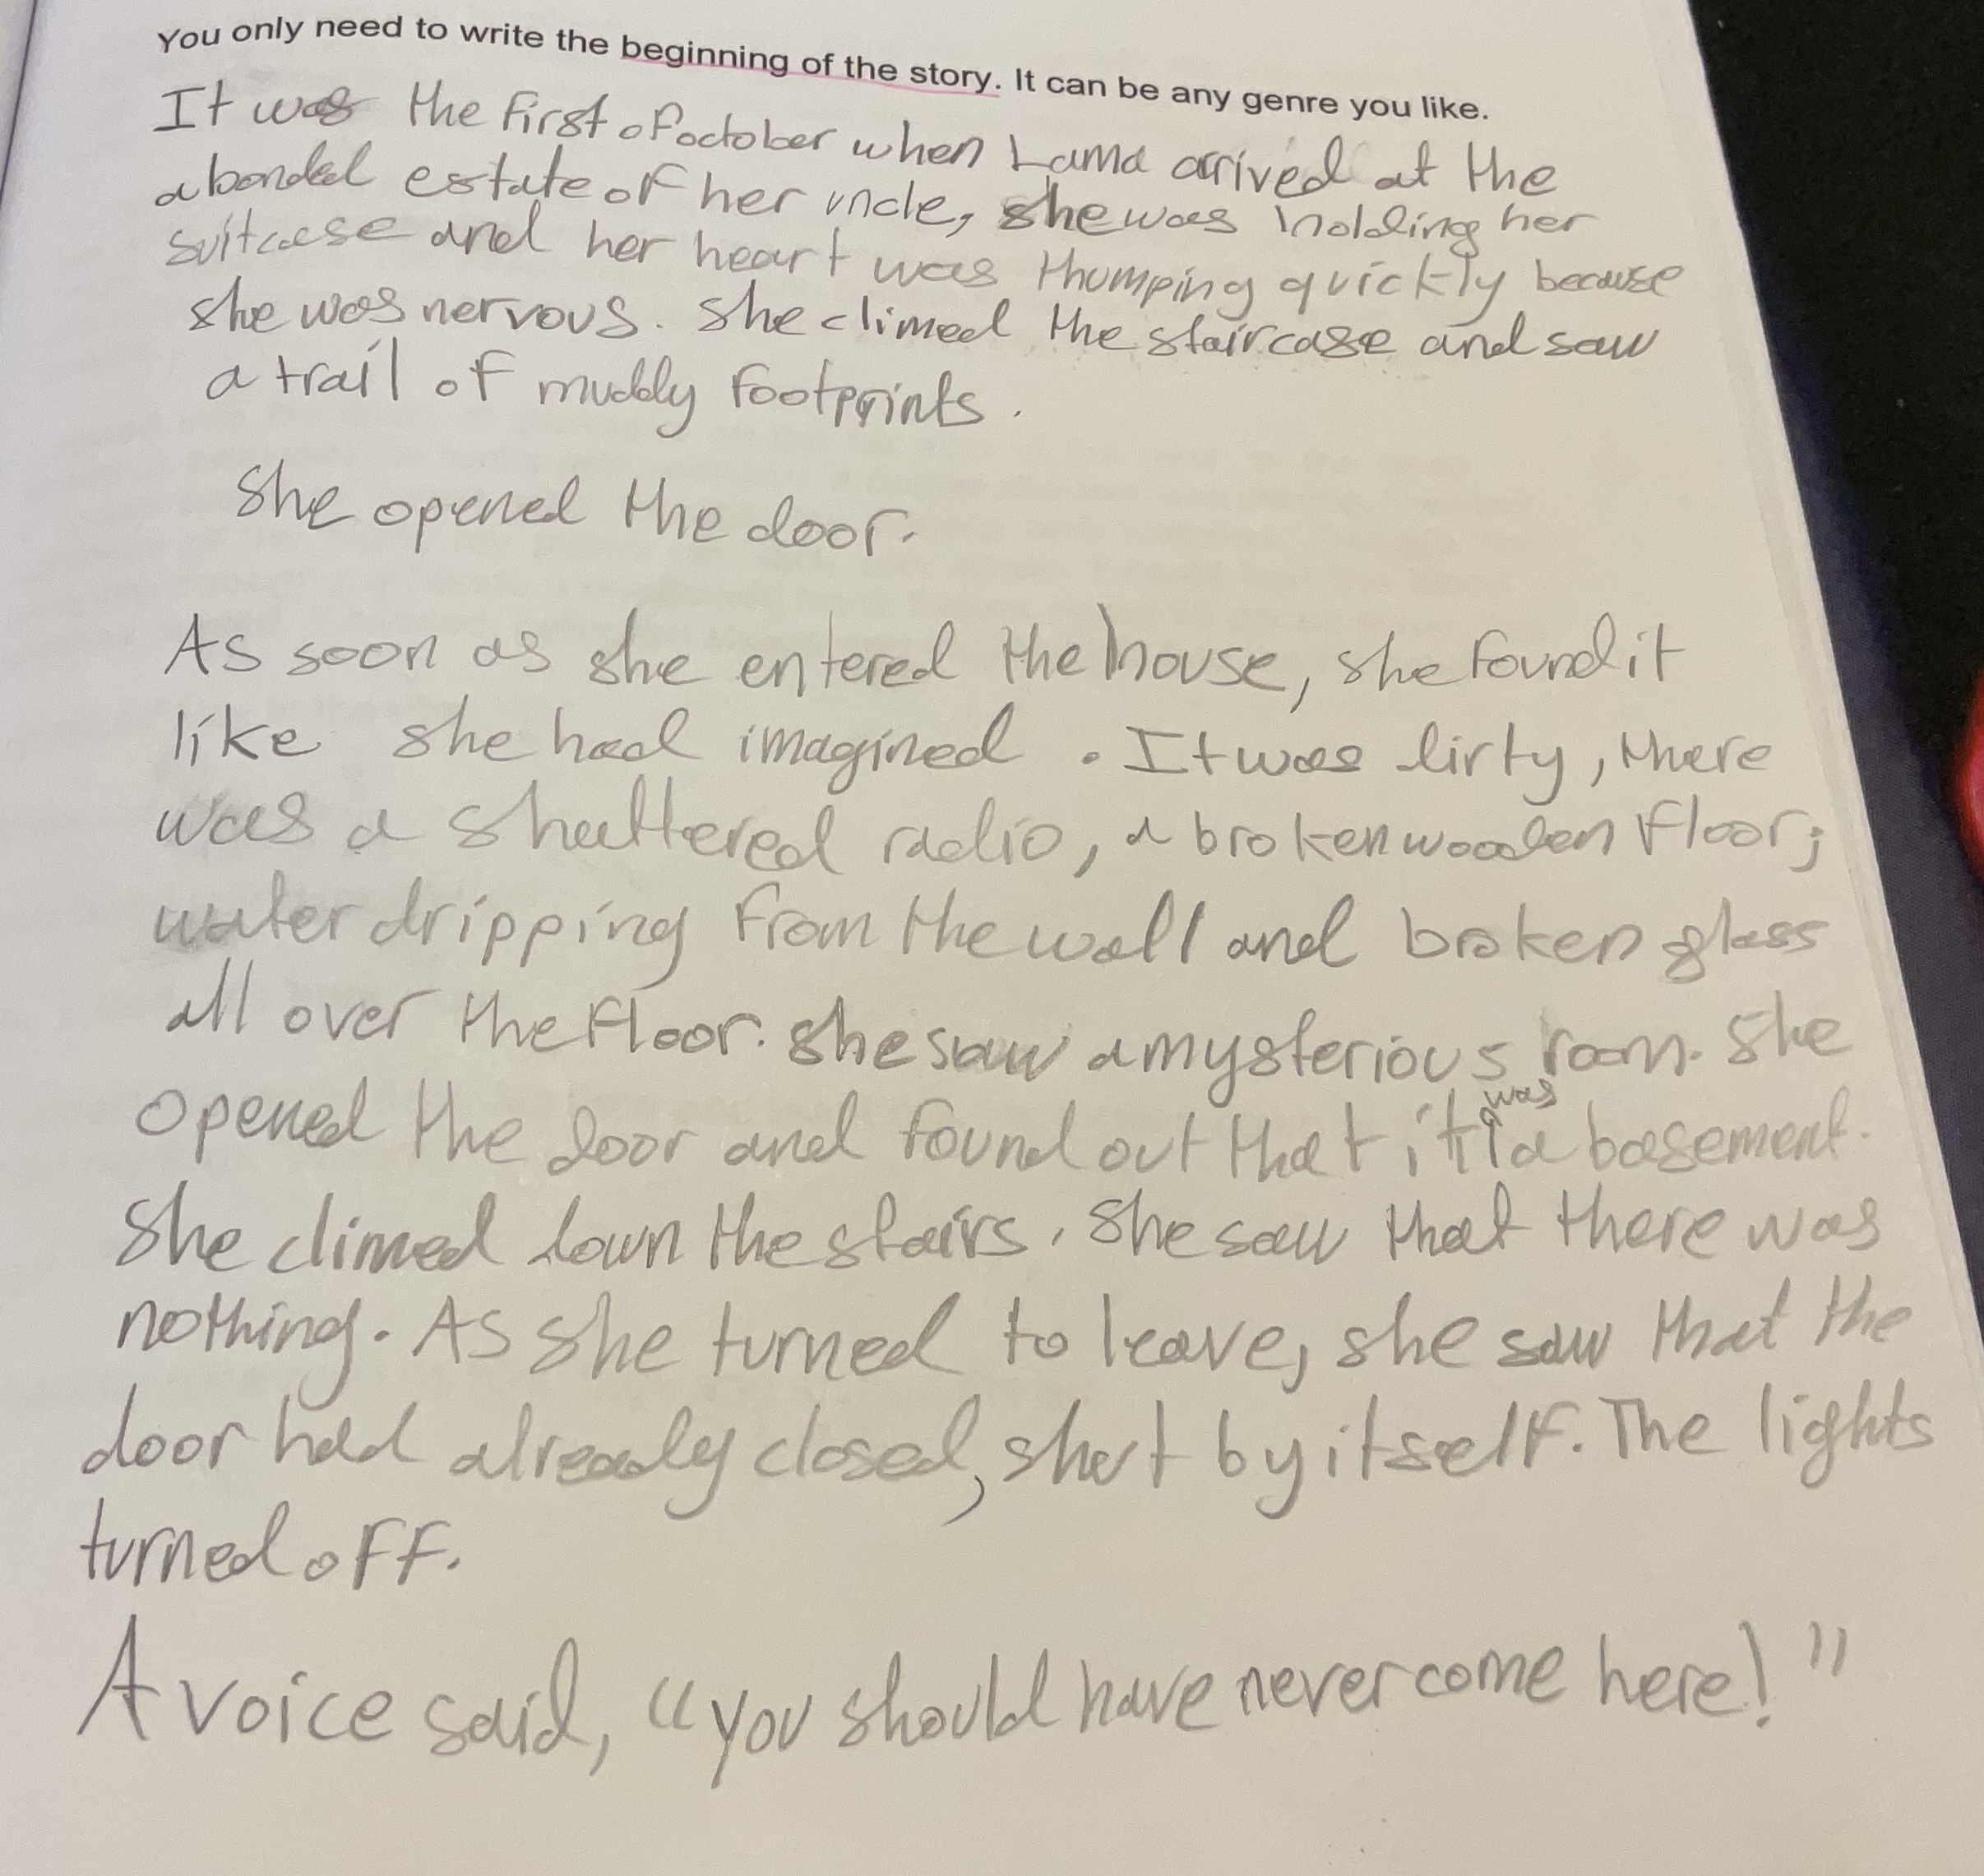 You only need to write the beginning of the story. It can be any genre you like.
It was the first of october when Lama arrived at the
abonded estate of her uncle, she was holding her
suitcase and her heart was thumping quickly because
she was nervous. She climed the staircase and saw
a trail of muddy footprints.
She opened the door.
As soon as she entered the house, she found it
like she had imagined. It was dirty, there
was a shattered radio, a broken wooden floor,
water dripping from the wall and broken glass
all over the floor. She saw a mysterious room. She
opened the door and found out that it was a basement.
She climed down the stairs. She saw that there was
nothing. As she turned to leave, she saw that the
door had already closed, shut by itself. The lights
turned off.
A voice said, "you should have never come here!"